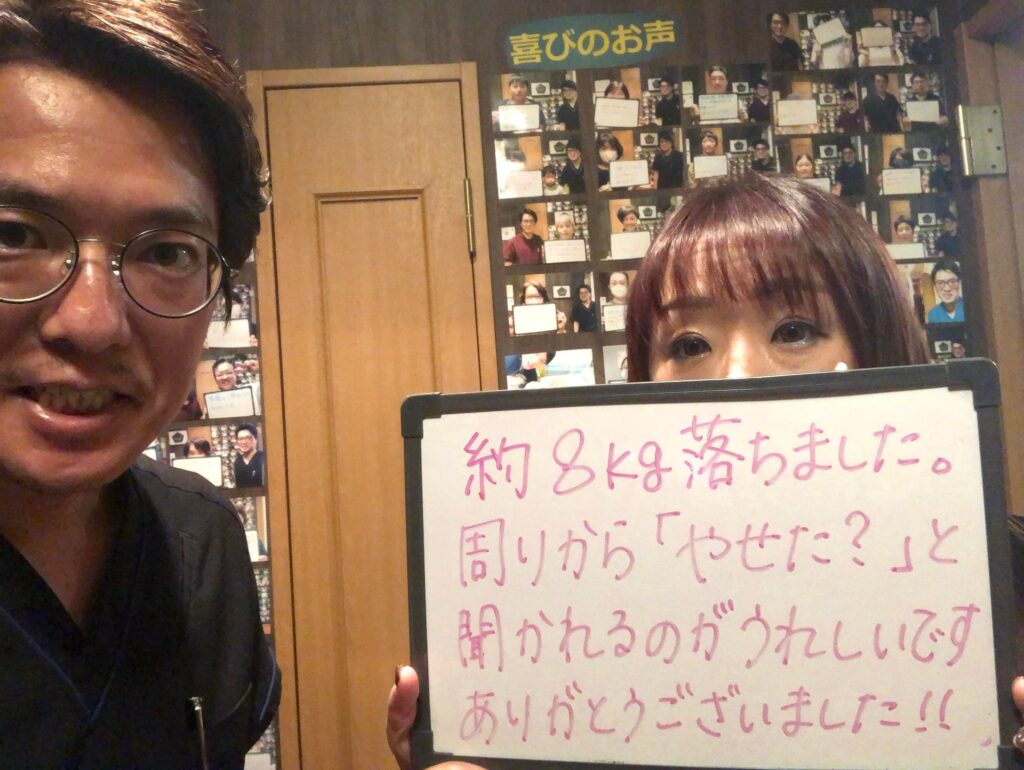 喜びのお声
約8kg落ちました。
周りから「やせた?」と
聞かれるのがうれしいです
ありがとうございました!!